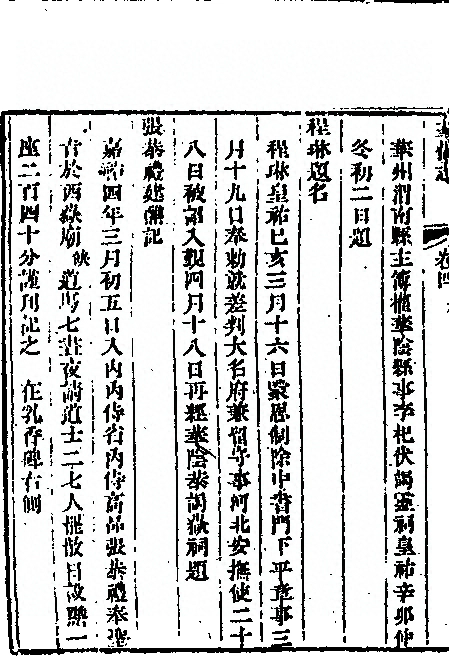 卷四
華州渭南縣主簿權華陰縣事李杞伏謁靈祠皇祐辛卯仲
冬初二日題
程琳題名
程琳皇祐己亥三月十六日蒙恩制除中書門下平章事三
月十九日奉勅就差判大名府兼留守事河北安撫使二十
八日被詔入覲四月十八日再經華陰恭謁嶽祠題
張恭禮建醮記
嘉祐四年三月初五日入內內侍省內侍高品張恭禮奉聖
旨於西嶽廟 道塲七晝夜請道士二七人罷散日設醮一
座二百四十分謹刊記之 在乳香碑右側